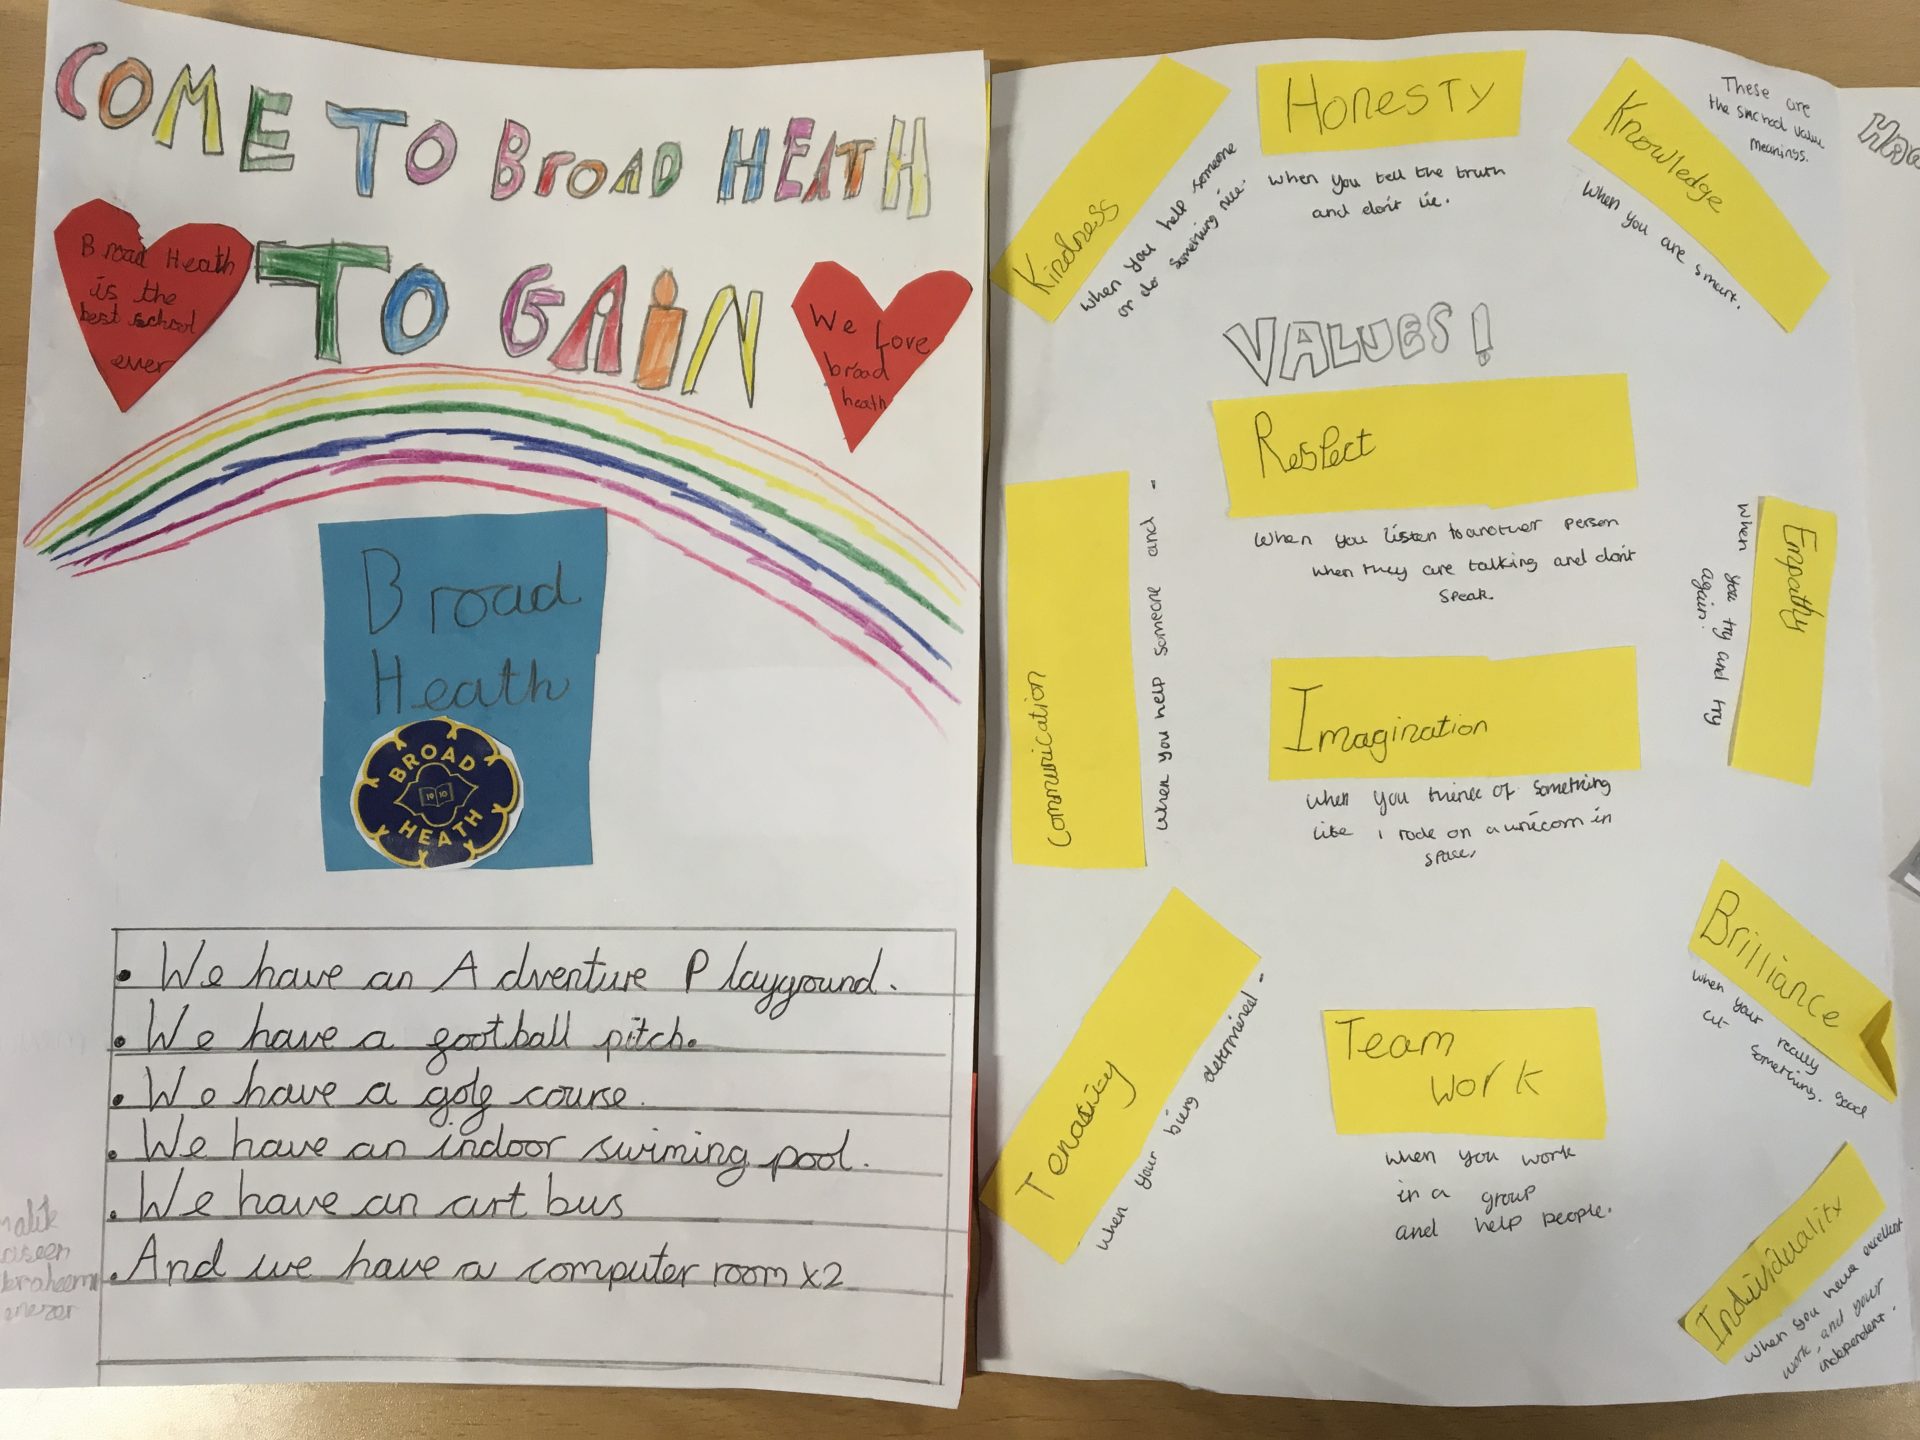 COME TO BROAD HEATH
TO GAiN
Broad Heath
is the
best school
ever
We Love
broad
heath
Broad
Heath
BROAD
1910
HEATH
• We have an Adventure Playground.
• We have a football pitch.
• We have a golf course.
• We have an indoor swiming pool.
• We have an art bus
• And we have a computer room x2
Kindness
when you help someone
or do something nice.
Honesty
when you tell the truth
and don't lie.
Knowledge
When you are smart.
These are
the school value
meanings.
VALUES!
Respect
When you listen to another person
when they are talking and don't
speak.
Communication
When you help someone and -
Empathy
when you try and try
again.
Imagination
when you think of something
like i rode on a unicorn in
space.
Brilliance
when your really good
at something.
Tenasity
when your bieng determined -
Team
work
when you work
in a group
and help people.
Individuality
When you have excellent
work and your
independent.